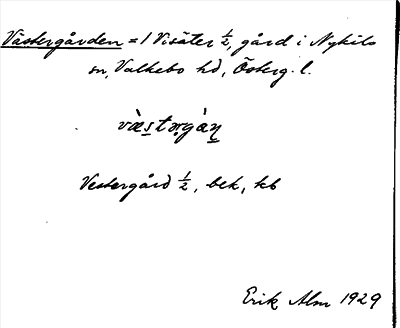 Västergården = 1 Visäter ½, gård i Nykils
sn, Valkebo hd, Österg. l.
væ̀stərgàn̥
Vestergård ½, bek, kb
Erik Alm 1929